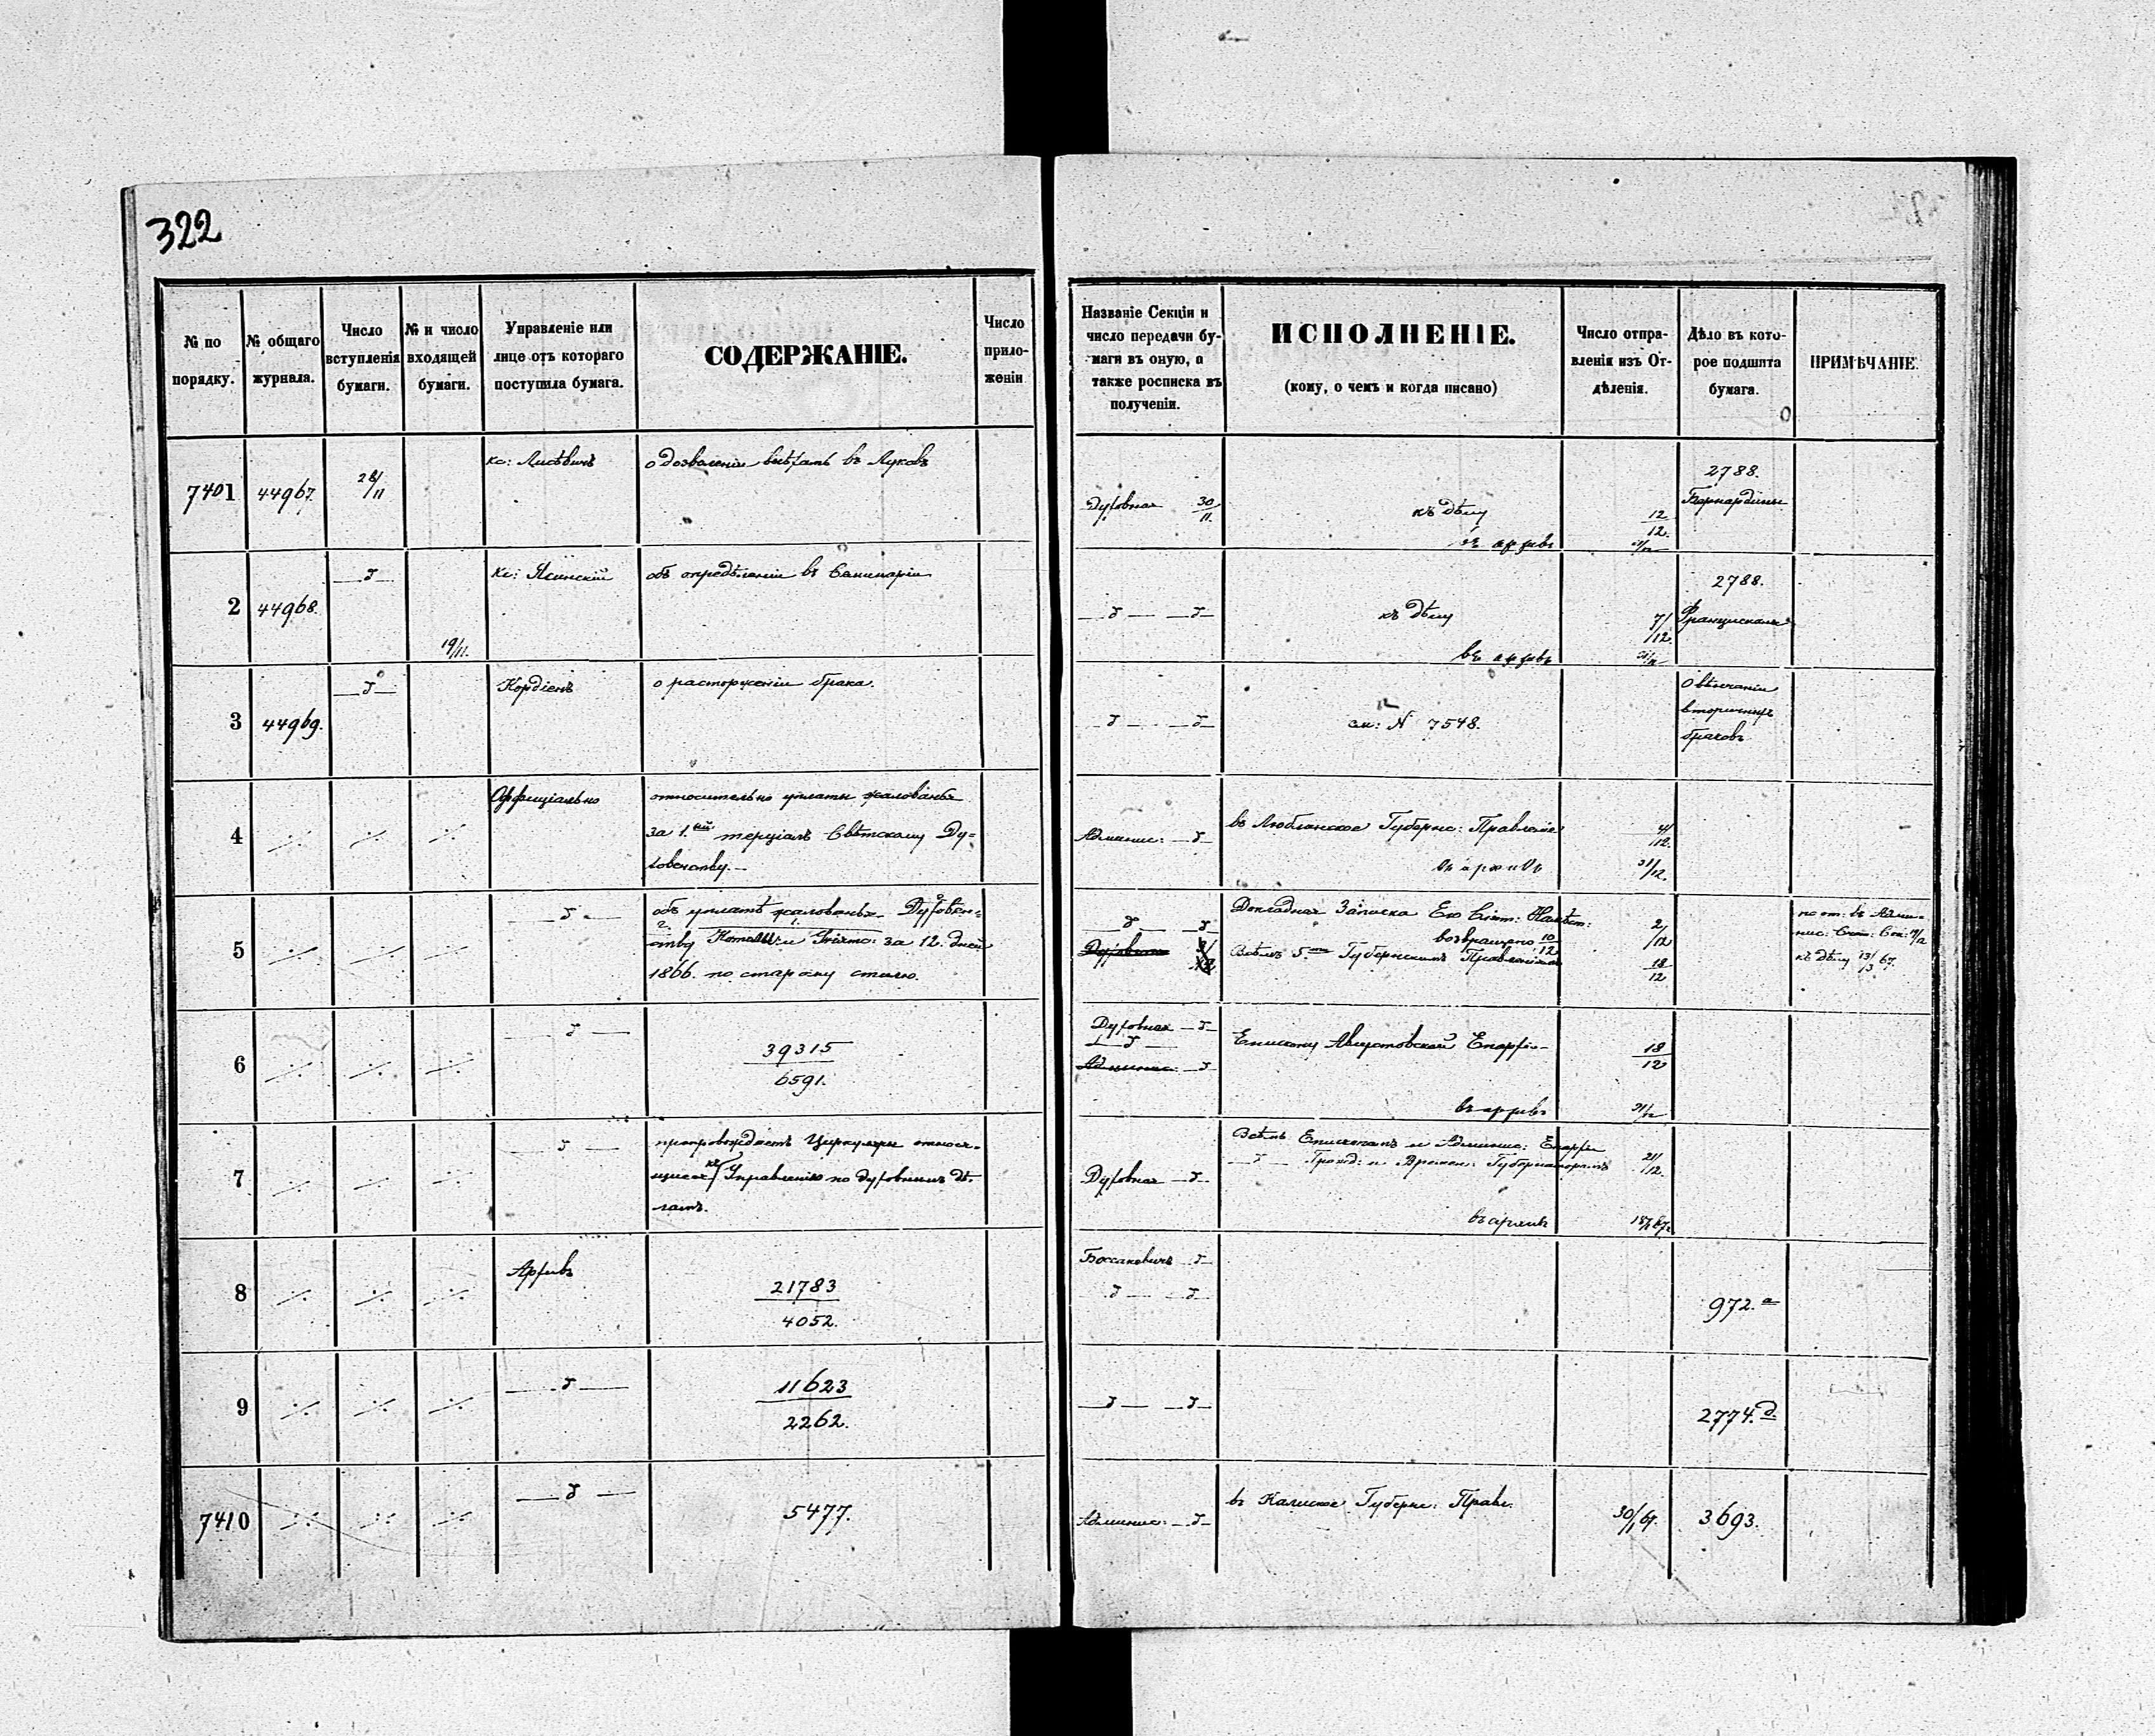 322
№ по порядку.
№ общаго журнала.
Число вступленія бумаги.
№ и число входящей бумаги.
Управленіе или лице отъ котораго поступила бумага.
СОДЕРЖАНІЕ.
Число приложеніи
Названіе Секціи и число передачи бумаги въ оную, а также росписка въ полученіи.
ИСПОЛНЕНІЕ.
(кому, о чемъ и когда писано)
Число отправленія изъ Отдѣленія.
Дѣло въ которое подшита бумага.
ПРИМѢЧАНІЕ.
7401 44967. 28/11 кс: о дозволеніи выѣхать въ Луковъ
Духовная 30/11. къ дѣлу 12/12. 2788. Бернардины
въ архивъ
2 44968. —д— 19/11. Кс: Ясинскій объ опредѣленіи въ Семинарію
—д— —д— къ дѣлу 7/12. 2788. Францискане
въ архивъ
3 44969. —д— Кордіенъ о расторженіи брака.
—д— —д— см: N 7548. О вѣнчаніи
вторичныхъ
браковъ
4 Оффиціально относительно уплаты жалованья
за 1.ый терціалъ Свѣтскому Ду=
ховенству.—
Админис: —д— въ Люблинское Губернс: Правленіе 4/12.
въ архивъ 31/12.
5 —д— объ уплатѣ жалованья Духовен=
ству за 12. дней
1866. по старому стилю.
—д— —д— Докладная Записка Его Намѣст: 2/12
возвращено 10/12
Духовная Всѣмъ 5.ти Губернскимъ Правленіямъ 18/12
къ дѣлу 13/3 67.
6 —д— 39315
6591.
Духовная —д—
—д—
Админис: —д— Епископу Августовской Епархіи— 18/12
въ архивъ 31/12
7 —д— препровождаетъ Циркуляры относя=
щіеся къ Управленію по духовнымъ дѣ=
ламъ.
Духовная —д— Всѣмъ Епископамъ и Админис: Епархіи
—д— Гражд: и Времен: Губернаторамъ 21/12.
въ архивъ
8 Архивъ 21783
4052.
—д— —д— 972. а
9 —д— 11623
2262.
—д— —д— 2774. д.
7410 —д— 5477.
Админис: —д— въ Калиское Губерн: Правл: 3693.